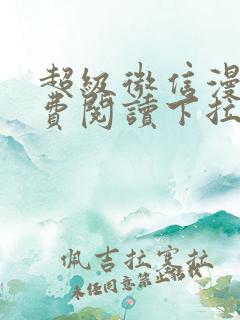 超級微信漫
費閱讀下拉
佩吉拉塞拉
未经同意禁止转载